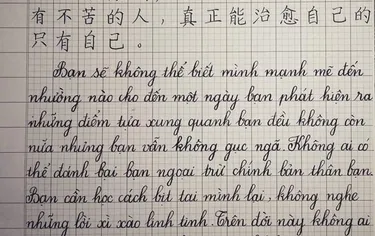 有不苦的人，真正能治愈自己的
只有自己。
Bạn sẽ không thể biết mình mạnh mẽ đến
nhường nào cho đến một ngày bạn phát hiện ra
những điểm tựa xung quanh bạn đều không còn
nữa nhưng bạn vẫn không gục ngã. Không ai có
thể đánh bại bạn ngoại trừ chính bản thân bạn.
Bạn cần học cách bịt tai mình lại, không nghe
những lời xì xào linh tinh. Trên đời này không ai